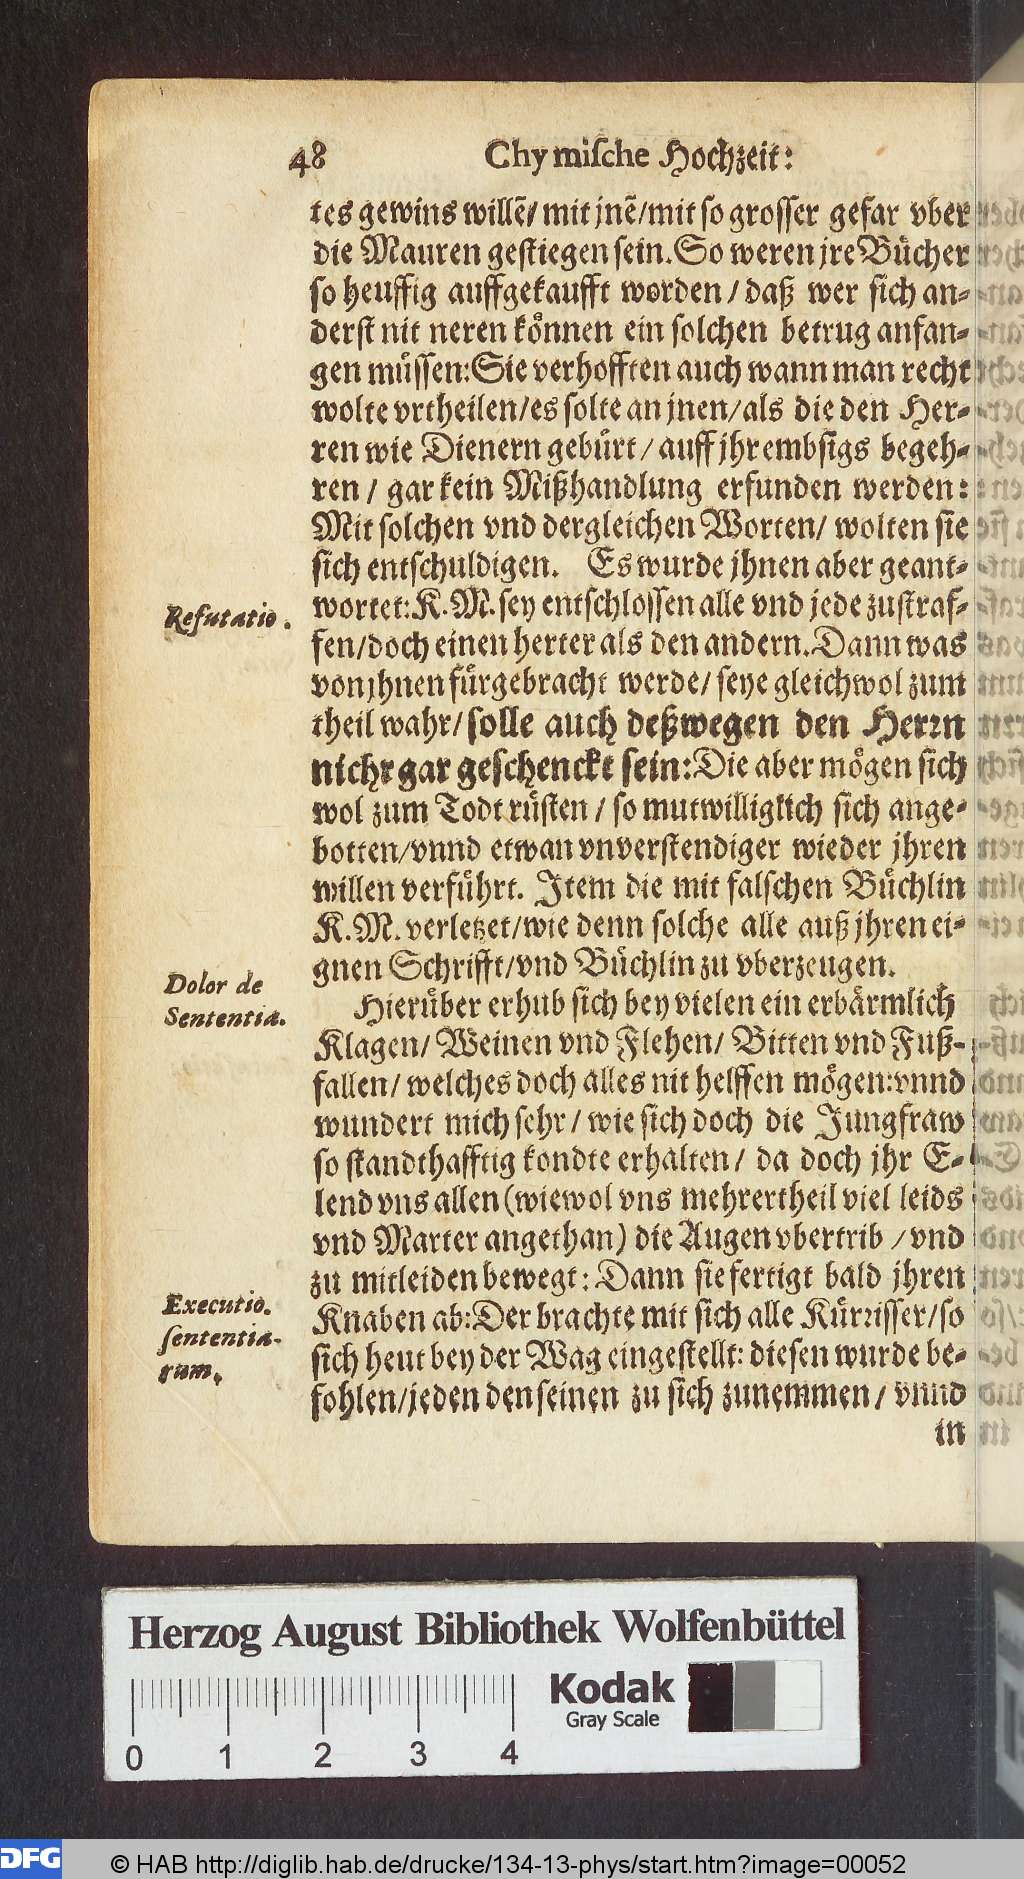 48 Chymische Hochzeit:
tes gewins willẽ/ mit jnẽ/mit so grosser gefar vber
die Mauren gestiegen sein. So weren jre Bücher
so heuffig auffgekaufft worden / daß wer sich an-
derst nit neren können ein solchen betrug anfan-
gen müssen: Sie verhofften auch wann man recht
wolte vrtheilen/es solte an jnen/als die den Her-
ren wie Dienern gebürt / auff jhr embsigs begeh-
ren / gar kein Mißhandlung erfunden werden:
Mit solchen vnd dergleichen Worten/ wolten sie
sich entschuldigen. Es wurde jhnen aber geant-
Refutatio.
wortet: K. M. sey entschlossen alle vnd jede zustraf-
fen/doch einen herter als den andern. Dann was
von jhnen fürgebracht werde/ seye gleichwol zum
theil wahr/ solle auch deßwegen den Herrn
nichr gar geschenckt sein: Die aber mögen sich
wol zum Todt rüsten / so mutwilligklich sich ange-
botten/vnnd etwan vnverstendiger wieder jhren
willen verführt. Item die mit falschen Büchlin
K. M. verletzet/wie denn solche alle auß jhren ei-
gnen Schrifft/vnd Büchlin zu vberzeugen.
Dolor de
Sententia.
Hierüber erhub sich bey vielen ein erbärmlich
Klagen/ Weinen vnd Flehen/ Bitten vnd Fuß-
fallen/ welches doch alles nit helffen mögen: vnnd
wundert mich sehr / wie sich doch die Jungfraw
so standthafftig kondte erhalten/ da doch jhr E-
lend vns allen (wiewol vns mehrertheil viel leids
vnd Marter angethan) die Augen vbertrib / vnd
zu mitleiden bewegt: Dann sie fertigt bald jhren
Executio.
sententia-
rum.
Knaben ab: Der brachte mit sich alle Kürrisser/so
sich heut bey der Wag eingestellt: diesen wurde be-
fohlen/jeden den seinen zu sich zunemmen / vnnd
in
Herzog August Bibliothek Wolfenbüttel
Kodak
Gray Scale
0 1 2 3 4
DFG © HAB http://diglib.hab.de/drucke/134-13-phys/start.htm?image=00052